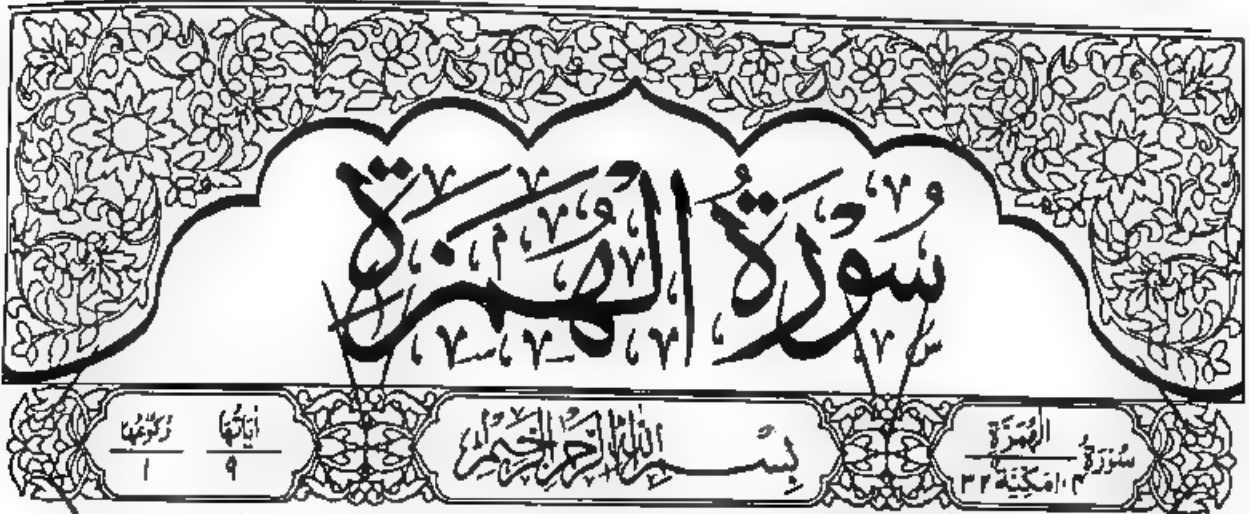 سُوْرَةُ الْهُمَزَةِ
سُوْرَةُ الْهُمَزَةِ ١٠٤ مَكِّيَّةٌ ٣٢
بِسْمِ اللّٰهِ الرَّحْمٰنِ الرَّحِيْمِ
اٰيَاتُهَا ٩
رُكُوْعُهَا ١